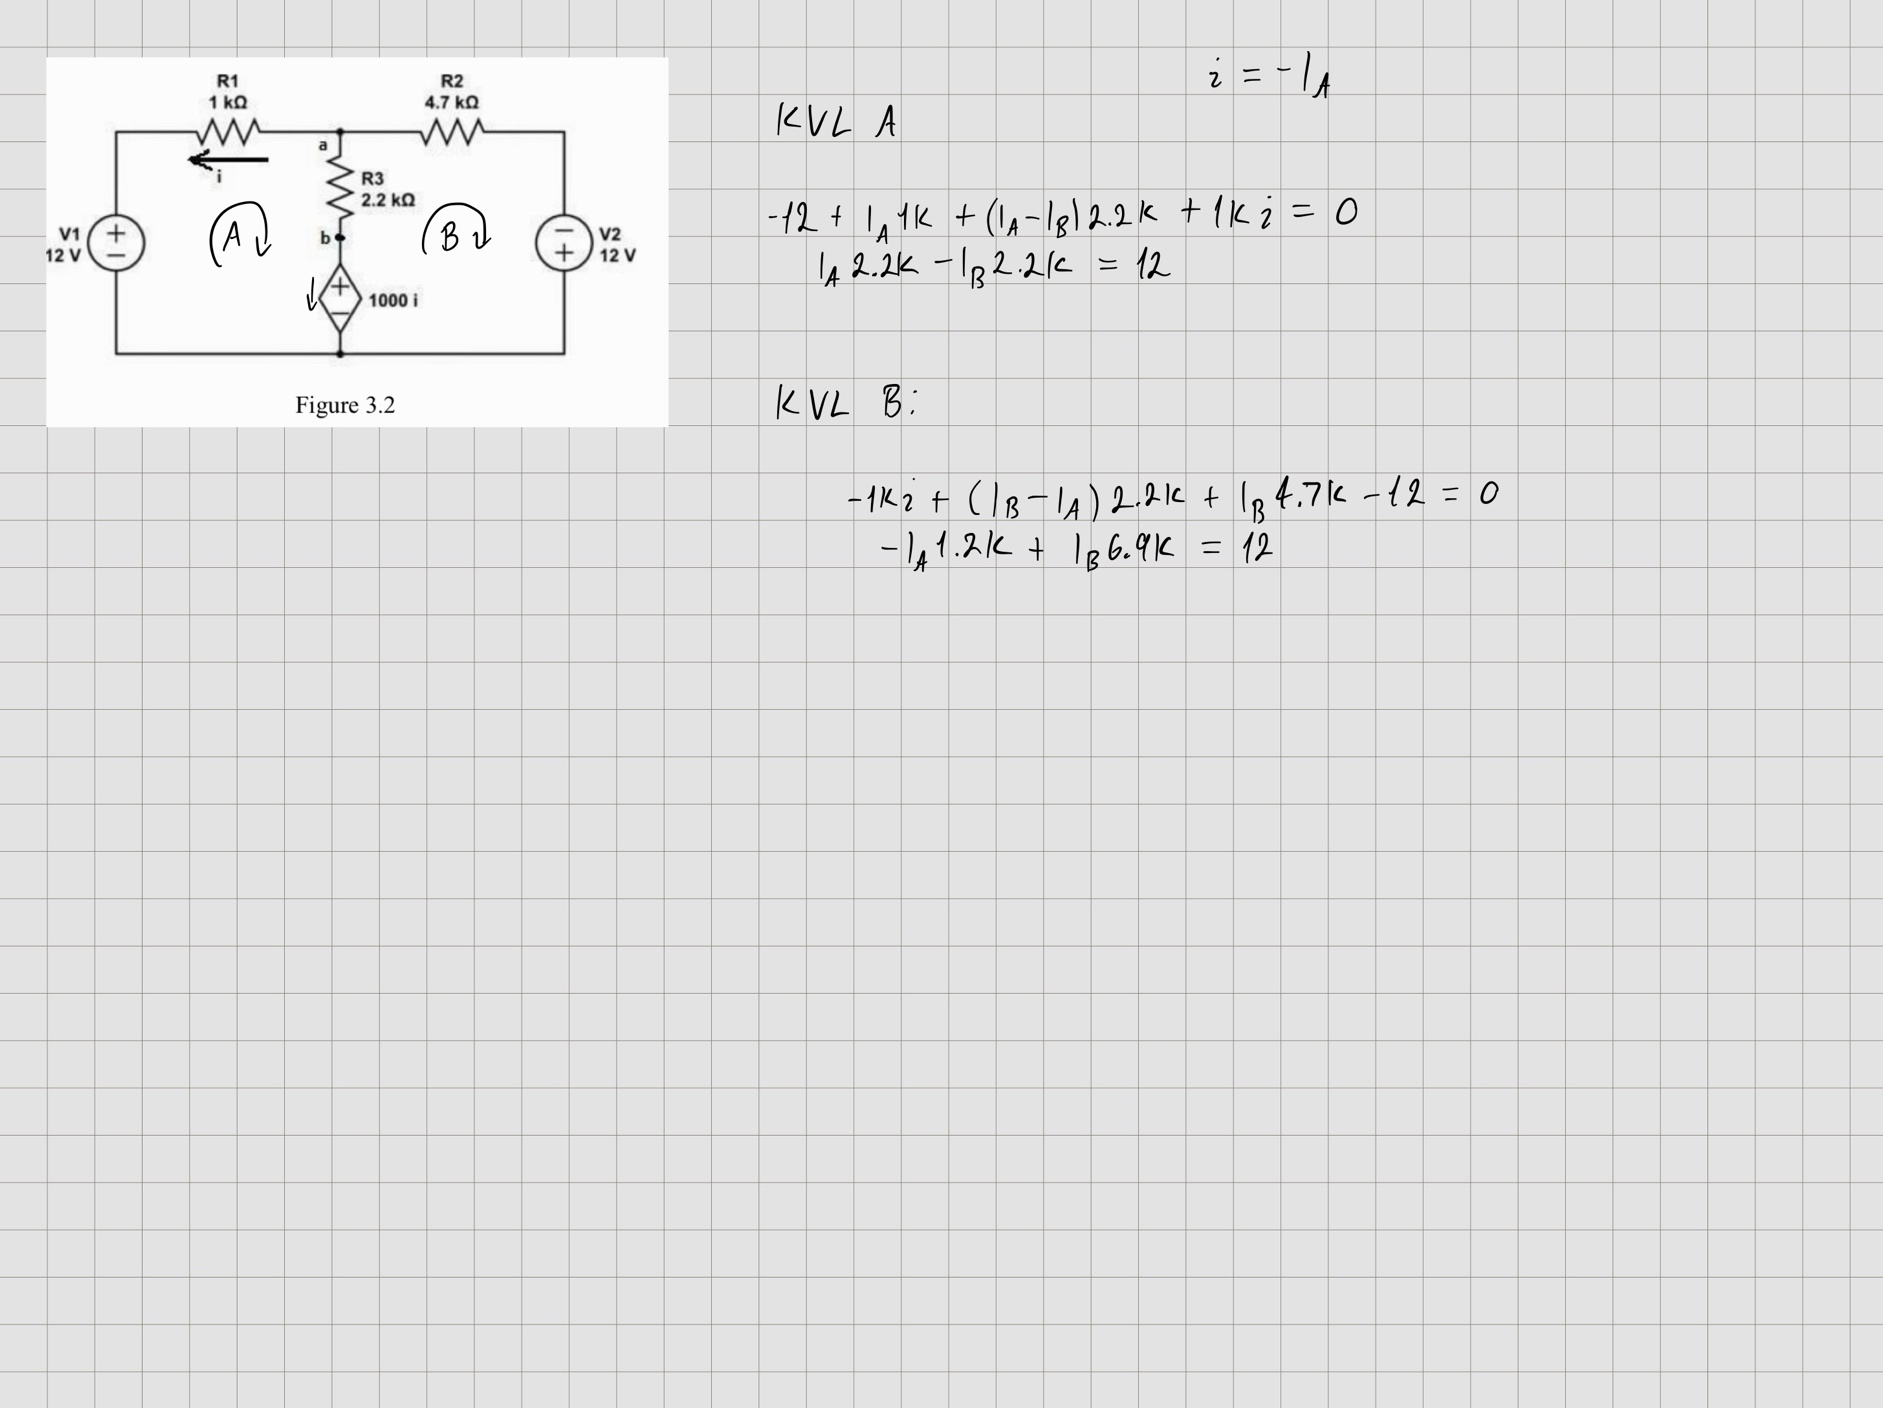 R1
1 kΩ
R2
4.7 kΩ
a
i
R3
2.2 kΩ
V1
12 V
A
b
B
V2
12 V
+
−
−
+
+
−
1000 i
Figure 3.2
i = -I_A
KVL A
-12 + I_A 1k + (I_A - I_B) 2.2k + 1k i = 0
I_A 2.2k - I_B 2.2k = 12
KVL B:
-1k i + (I_B - I_A) 2.2k + I_B 4.7k - 12 = 0
-I_A 1.2k + I_B 6.9k = 12